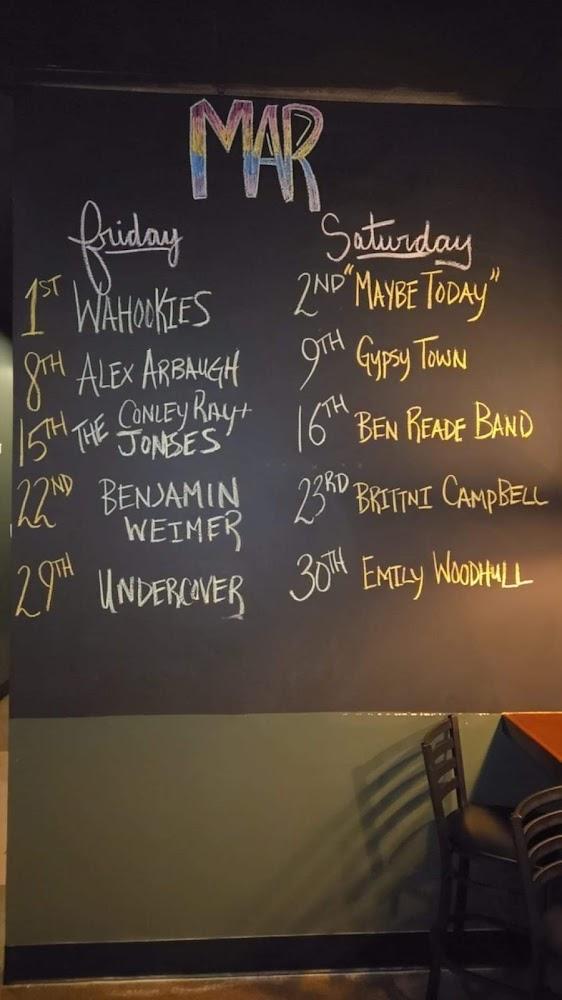 MAR
friday
1ST WAHOOKIES
8TH ALEX ARBAUGH
15TH THE CONLEY RAY +
JONSES
22ND BENJAMIN
WEIMER
29TH UNDERCOVER
Saturday
2ND "MAYBE TODAY"
9TH GYPSY TOWN
16TH BEN READE BAND
23RD BRITTNI CAMPBELL
30TH EMILY WOODHULL